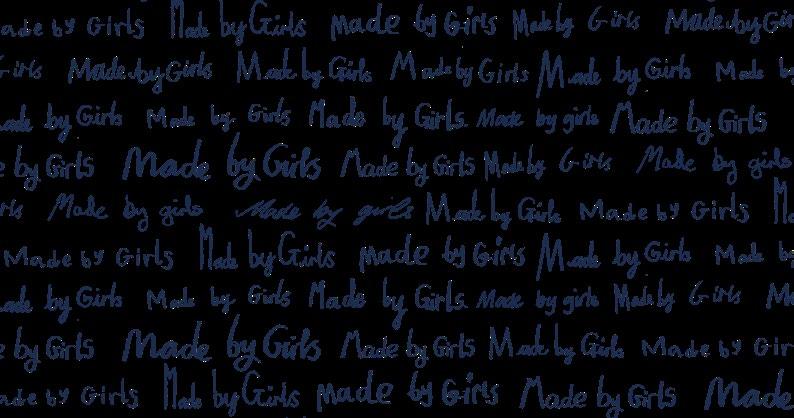 Made by Girls Made by Girls Made by Girls Made by Girls Made by Gir
Girls Made by Girls Made by Girls Made by Girls Made by Girls Made by
Made by Girls Made by Girls Made by Girls Made by girls Made by Girls
e by Girls Made by Girls Made by Girls Made by Girls Made by girls
rls Made by girls Made by girls Made by Girls Made by Girls
Made by Girls Made by Girls Made by Girls Made by Girls Made by
Made by Girls Made by Girls Made by Girls Made by girls Made by Girls M
e by Girls Made by Girls Made by Girls Made by Girls Made by Gir
ade by Girls Made by Girls Made by Girls Made by Girls Made